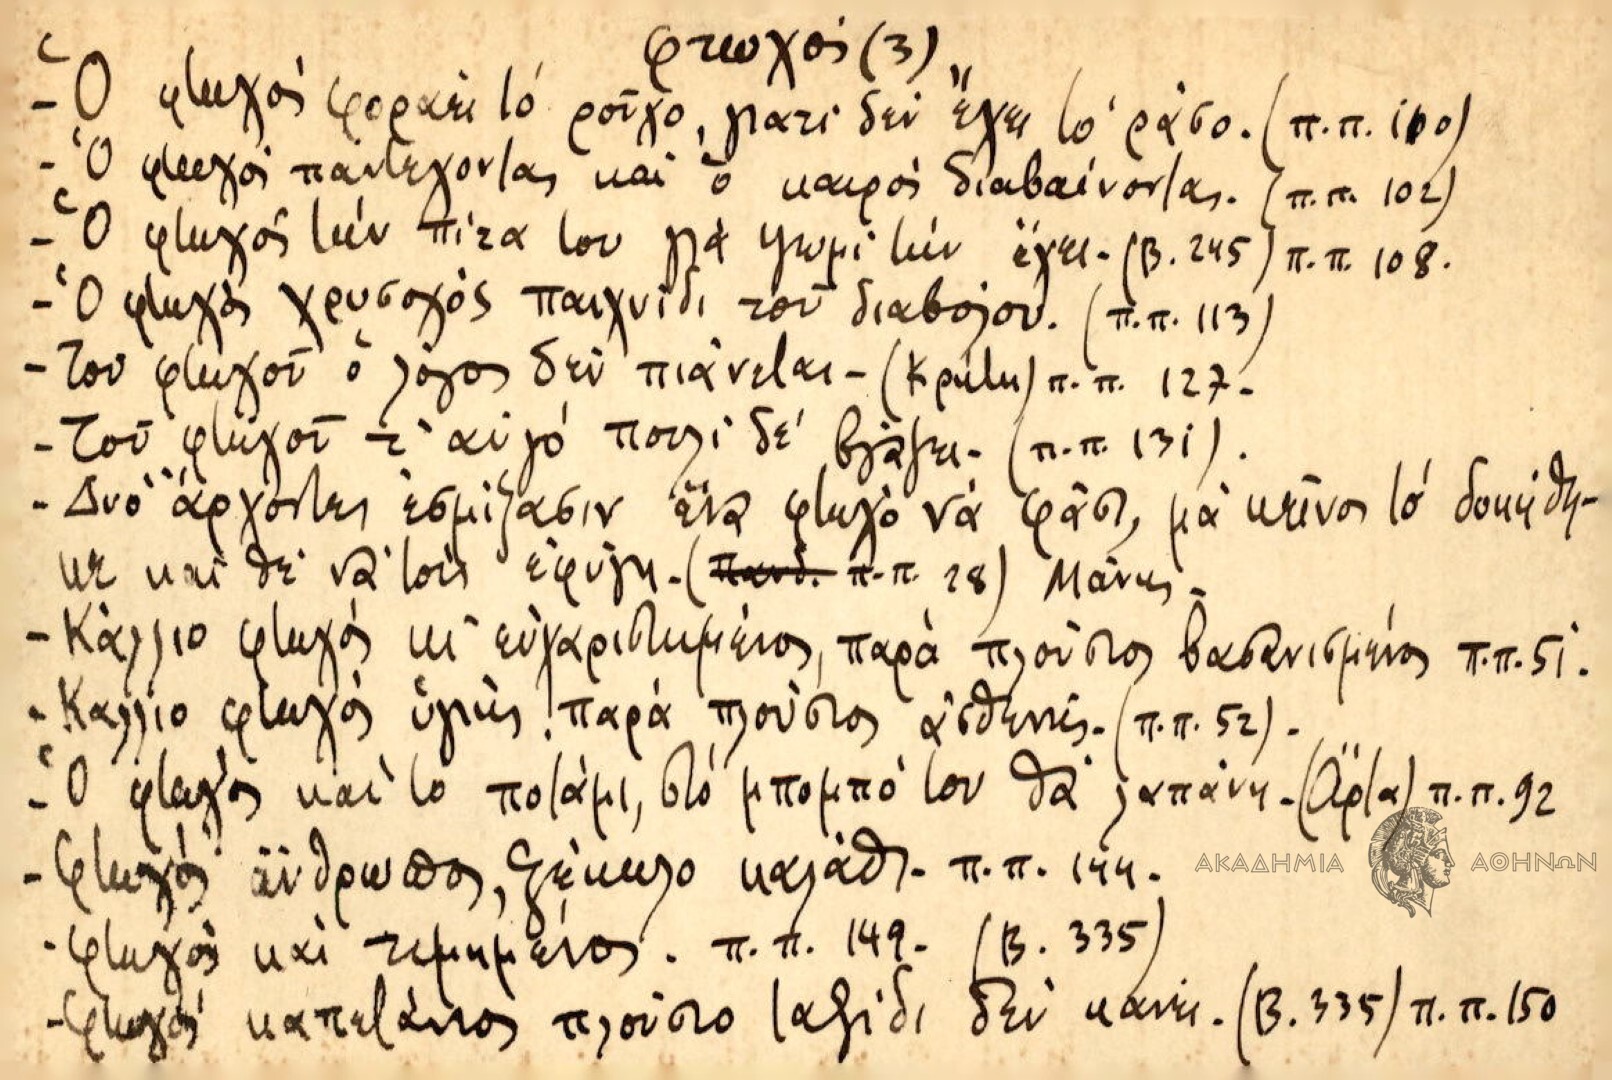 φτωχός (3)
- Ὁ φτωχός φοράει τό ροῦχο, γιατί δέν ἔχει τό ράσο. (π.π. 100)
- Ὁ φτωχός παντέχοντας καί ὁ καιρός διαβαίνοντας. (π.π. 102)
- Ὁ φτωχός τήν πίτα του γιά ψωμί τήν ἔχει. (Β. 245) π.π. 108.
- Ὁ φτωχός χρυσοχός παιχνίδι τοῦ διαβόλου. (π.π. 113)
- Τοῦ φτωχοῦ ὁ λόγος δέν πιάνεται - (Κρήτη) π.π. 127 -
- Τοῦ φτωχοῦ τ' αὐγό πουλί δέ βγάζει - (π.π. 131).
- Δυό ἄρχοντες ἐσμίξασιν ἕνα φτωχό νά φᾶσι, μά κεῖνος τό δοκήθη-
κε καί θέ νά τούς ἐφύγη - (π.π. 28) Μάνης -
- Κάλλιο φτωχός κι' εὐχαριστημένος, παρά πλούσιος βασανισμένος π.π. 51.
- Κάλλιο φτωχός ὑγιής παρά πλούσιος ἀσθενής - (π.π. 52) -
- Ὁ φτωχός καί τό ποτάμι, στό μπομπό του θά λαπάνη - (Ἄρτα) π.π. 92
- Φτωχός ἄνθρωπος, ξέκωλο καλάθι - π.π. 144 -
- φτωχός καί τιμημένος. π.π. 149 - (Β. 335)
- φτωχός καπετάνιος πλούσιο ταξίδι δέν κάνει. (Β. 335) π.π. 150
ΑΚΑΔΗΜΙΑ ΑΘΗΝΩΝ